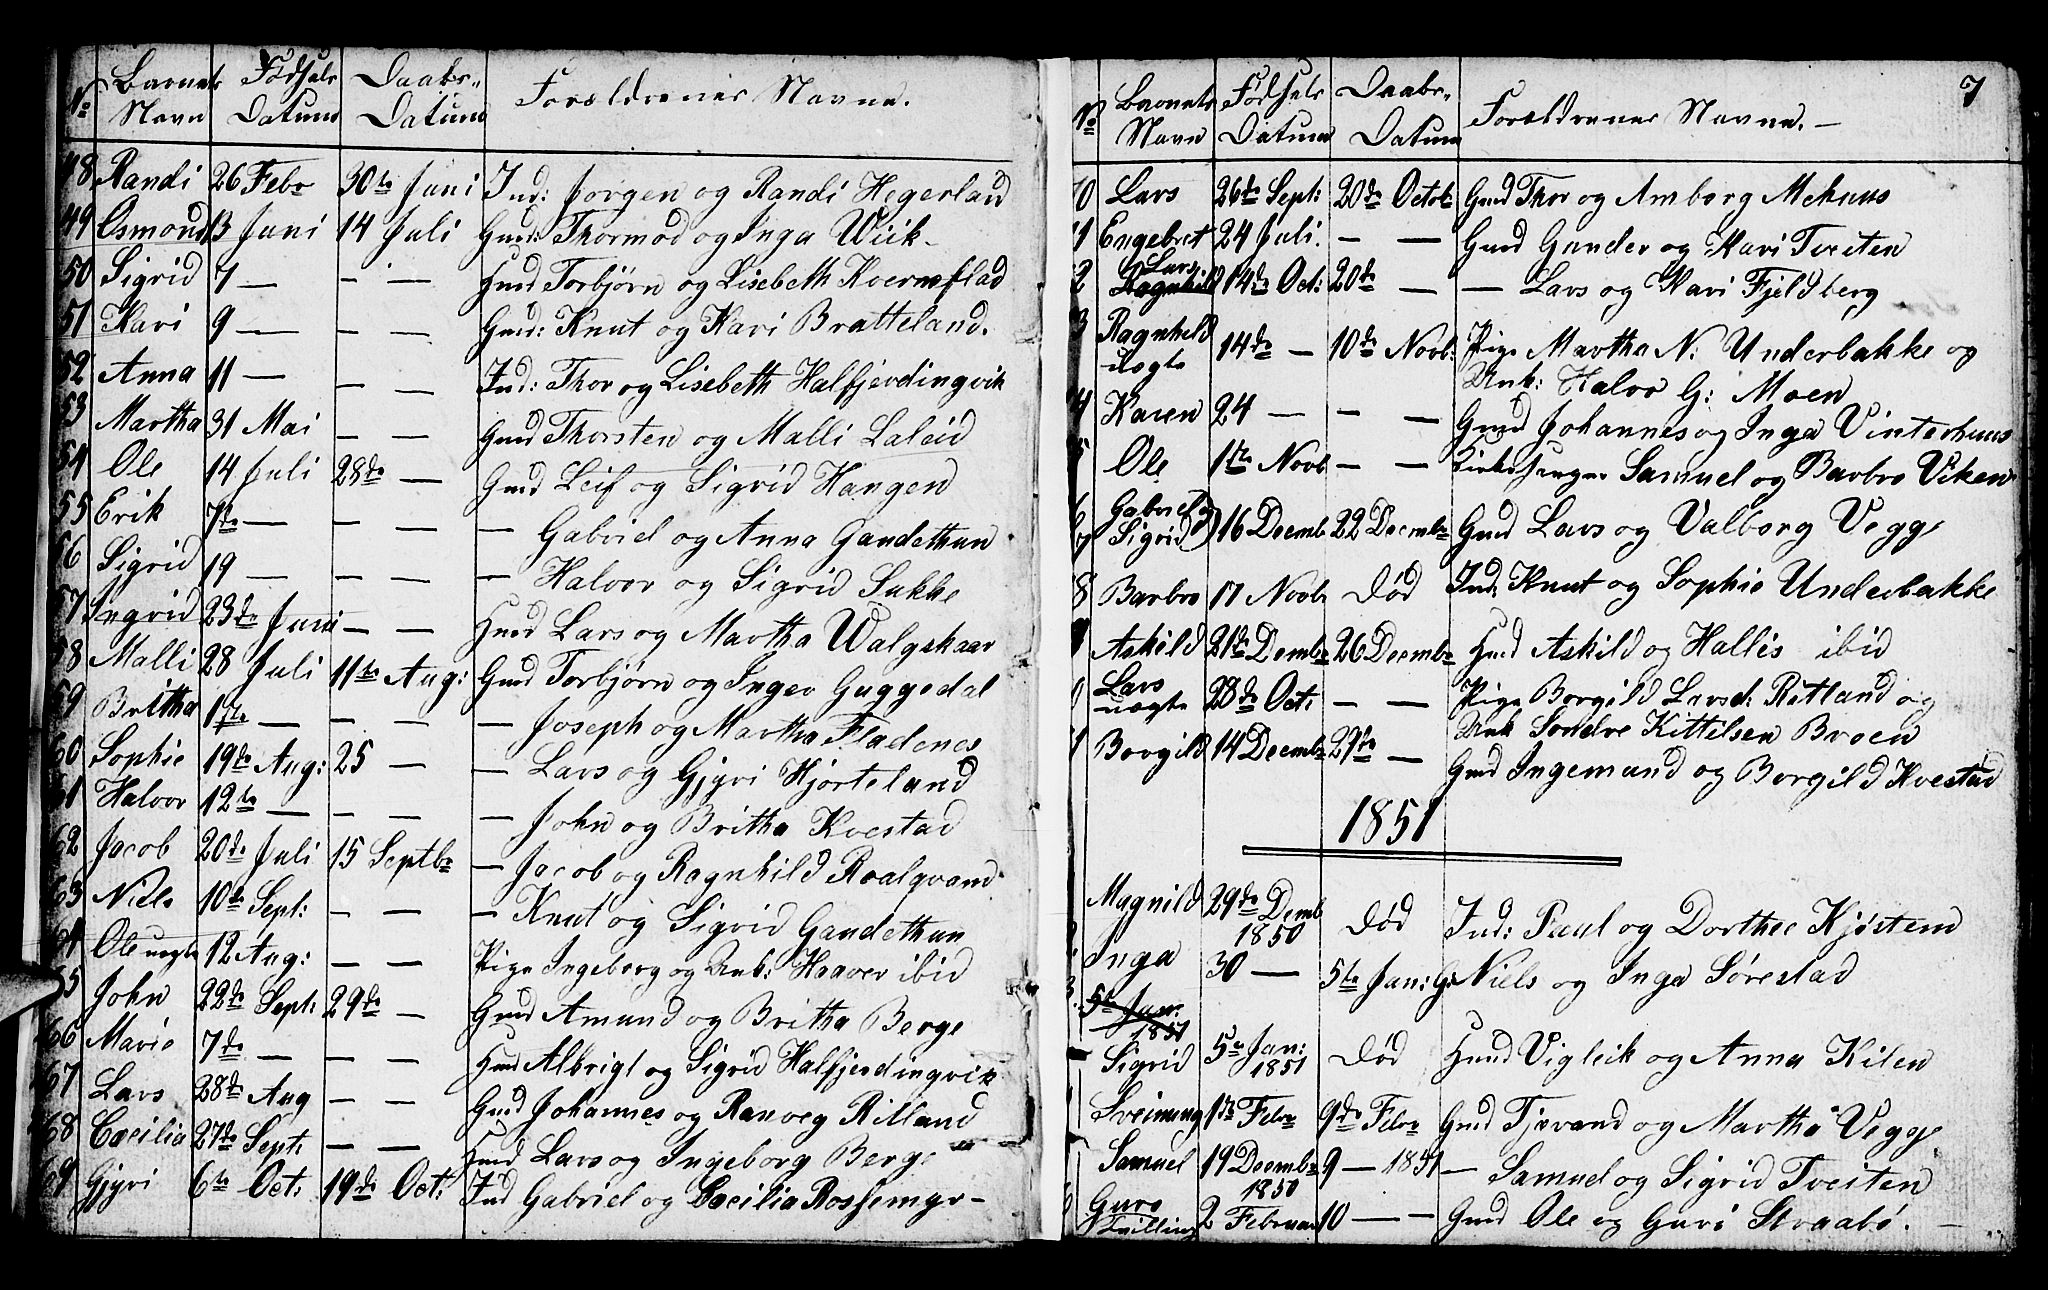 No Barnets Navn Fødsels Datum Daabs- Datum Forældrenes Navne.
48 Randi 26 Febr 30te Juni Ind: Jørgen og Randi Hegerland
49 Osmond 13 Juni 14 Juli Gmd: Thormod og Inga Wiik-
50 Sigrid 7 — - — Hmd Torbjørn og Lisebeth Kverneflad
51 Kari 9 — — Gmd: Knut og Kari Bratteland.
52 Anna 11 — — — Ind: Thor og Lisebeth Halfjerdingvik
53 Martha 31 Mai — — Gmd Thorsten og Malli Laleid
54 Ole 14 Juli 28de — Gmd Leif og Sigrid Haugen
55 Erik 7de — — — — Gabriel og Anna Gaudethun
56 Sigrid 19 — — — — Halvor og Sigrid Sukke
57 Ingrid 23de Juni — — Hmd Lars og Martha Walgskaar
58 Malli 28 Juli 11te Aug: Gmd Torbjørn og Inger Guggedal
59 Britha 1te — — — — Joseph og Martha Fladenes
60 Sophie 19de Aug: 25 — — Lars og Gjyri Hjorteland
61 Halvor 12te — — — — John og Britha Kvestad
62 Jacob 20de Juli 15 Septbr — Jacob og Ragnhild Roalqvand
63 Niels 10de Sept: — — — Knut og Sigrid Gaudethun
64 Ole uægte 12 Aug: — — Pige Ingeborg og Unk: Haaver ibid
65 John 22de Sept: 29de — Gmd Amund og Britha Berge
66 Marie 7de — — — Hmd Albrigt og Sigrid Halfjerdingvik
67 Lars 28de Aug — — Gmd Johannes og Ranveg Ritland
68 Cæcilia 27de Sept: — — Hmd Lars og Ingeborg Berge
69 Gjyri 6te Oct: 19de Oct: Ind Gabriel og Cæcilia Rossemyr-
7
No Barnets Navn Fødsels Datum Daabs- Datum Forældrenes Navne. —
0 Lars 26de Sept: 20de Octob: Gmd Thor og Amborg Mehuus
1 Engebret 24 Juli. — — Gmd Gunder og Kari Tveiten
2 Lars Ragnhild 14de Oct: 20de — — Lars og Kari Fjeldberg
3 Ragnhild uægte 14de — 10de Novb: Pige Martha N: Underbakke og
Unk: Halvor G: Moen
4 Karen 24 — — — Gmd Johannes og Inga Vinterhuus
5 Ole 1te Novb — — Kirkesanger Samuel og Barbro Viken
6 Gabriel og
7 Sigrid 16 Decemb 22 Decembr Gmd Lars og Valborg Vegge
8 Barbro 17 Novb Død Ind: Knut og Sophie Underbakke
9 Askild 21de Dembr 26 Decembr Hmd Askild og Hallis ibid
0 Lars uægte 28de Oct: — — Pige Borgild Larsd: Ritland og
Unk Sondre Kittilsen Broen
1 Borgild 14 Decembr 29te — Gmd Ingemund og Borgild Kvestad
1851
Magnild 29de Demb 1850 Død Ind: Paul og Dorthee Kjøstem
Inga 30 — 5te Jan: G: Niels og Inga Sørestad
3. 5te Jan: 1851
Sigrid 5te Jan: 1851 Død Hmd Vigleik og Anna Kilen
Sveinung 1te Febr 9de Febr Gmd Tjøvand og Martha Vegge
Samuel 19 Decembr 1850 9 — 1851 — Samuel og Sigrid Tveiten
Guro Tvilling 2 Februar 10 — — Gmd Ole og Guri Straabø. —